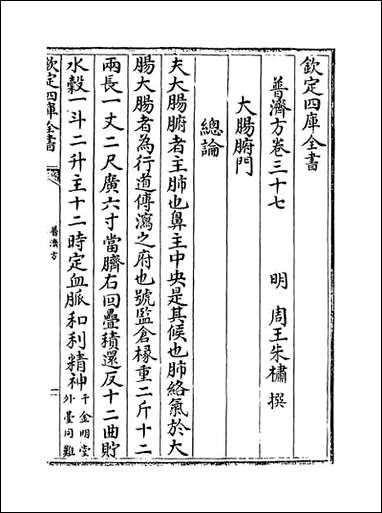 欽定四庫全書
普濟方卷三十七
明 周王朱橚 撰
大腸腑門
總論
夫大腸腑者主肺也鼻主中央是其候也肺絡氣於大
腸大腸者為行道傳瀉之府也號監倉椽重二斤十二
兩長一丈二尺廣六寸當臍右回疊積還反十二曲貯
水穀一斗二升主十二時定血脈和利精神千金明堂
外臺同難
欽定四庫全書
普濟方
一